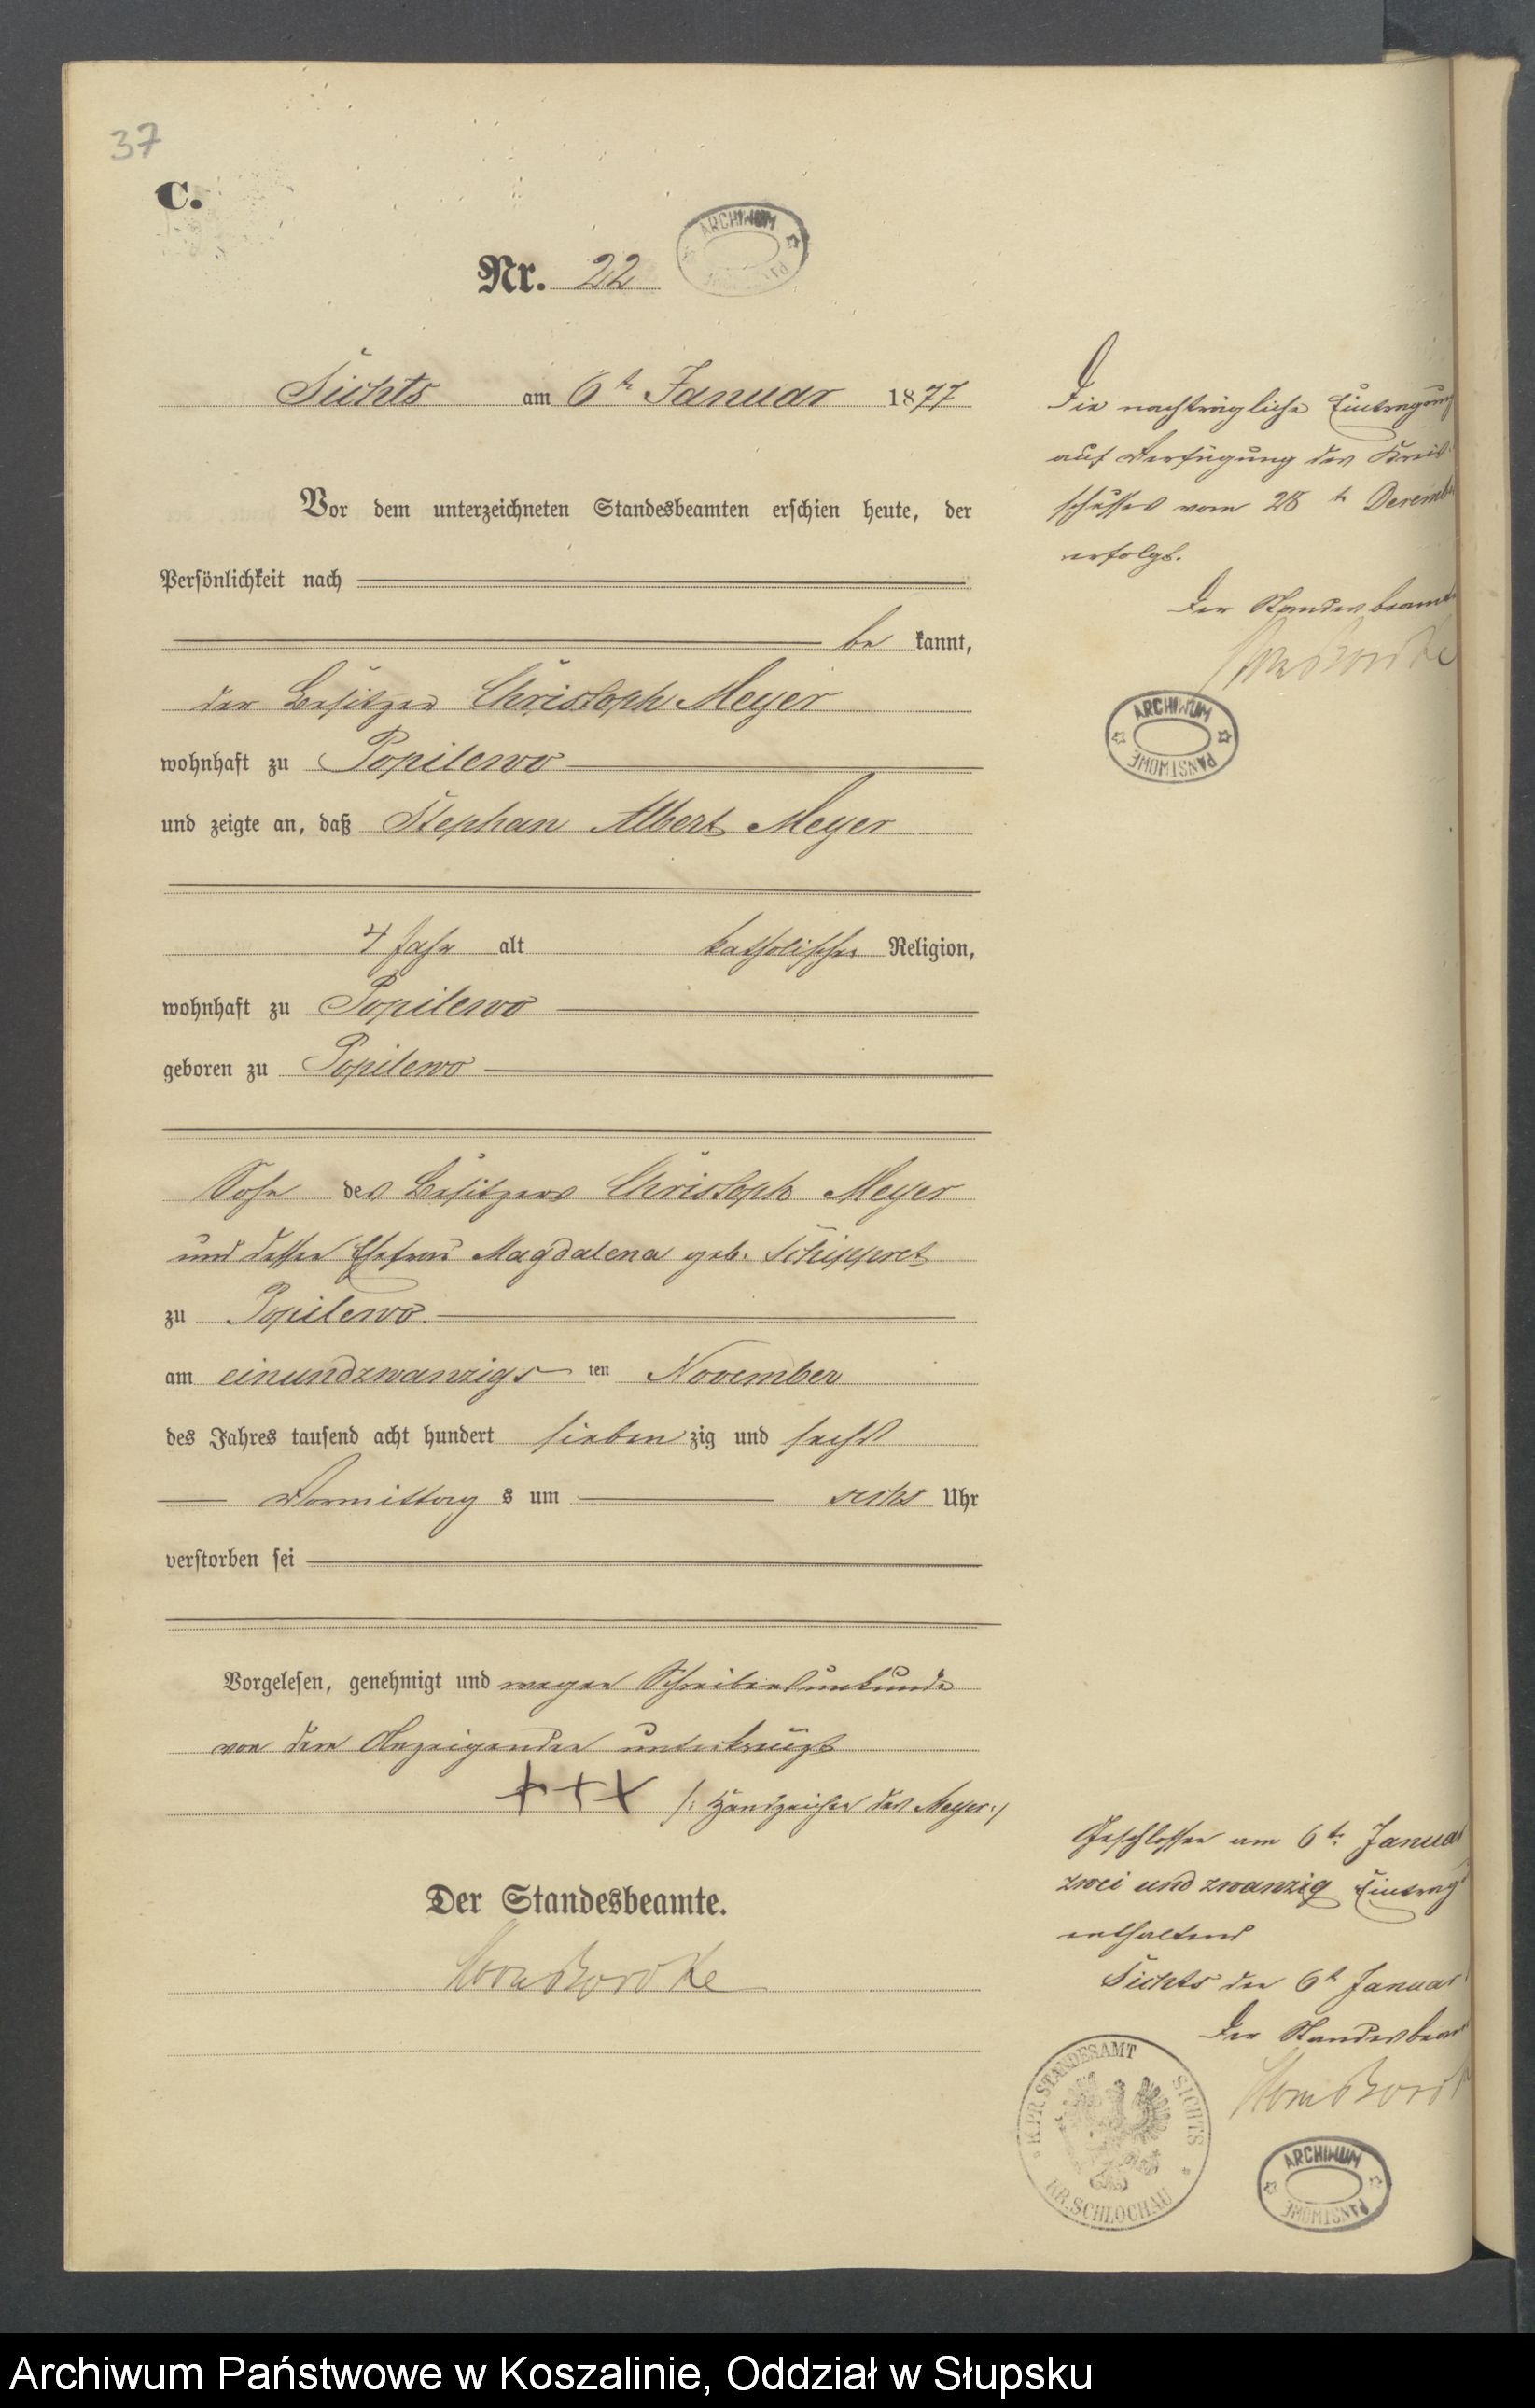 37
C.
Nr. 22
ARCHIWUM PAŃSTWOWE
Sichts am 6t Januar 1877
Vor dem unterzeichneten Standesbeamten erschien heute, der
Persönlichkeit nach
be kannt,
der Besitzer Christoph Meyer
wohnhaft zu Popilewo
und zeigte an, daß Stephan Albert Meyer
4 Jahr alt katholischer Religion,
wohnhaft zu Popilewo
geboren zu Popilewo
Sohn des Besitzers Christoph Meyer
und dessen Ehefrau Magdalena geb.
zu Popilewo.
am einundzwanzigs ten November
des Jahres tausend acht hundert sieben zig und sechs
Vormittag s um sechs Uhr
verstorben sei
Vorgelesen, genehmigt und wegen Schreibensunkunde
von dem Anzeigenden unterkreuzt
+++ /: Handzeichen des Meyer :/
Der Standesbeamte.
Die nachträgliche Eintragung
auf Verfügung des Kreis
schusses vom 28 t Decemb
erfolgt.
Der Standesbeamt
ARCHIWUM PAŃSTWOWE
Geschlossen am 6t Januar
zwei und zwanzig Eintrag
enthaltend
Sichts den 6t Januar
Der Standesbeam
K.PR.STANDESAMT SICHTS
KR.SCHLOCHAU
ARCHIWUM PAŃSTWOWE
Archiwum Państwowe w Koszalinie, Oddział w Słupsku